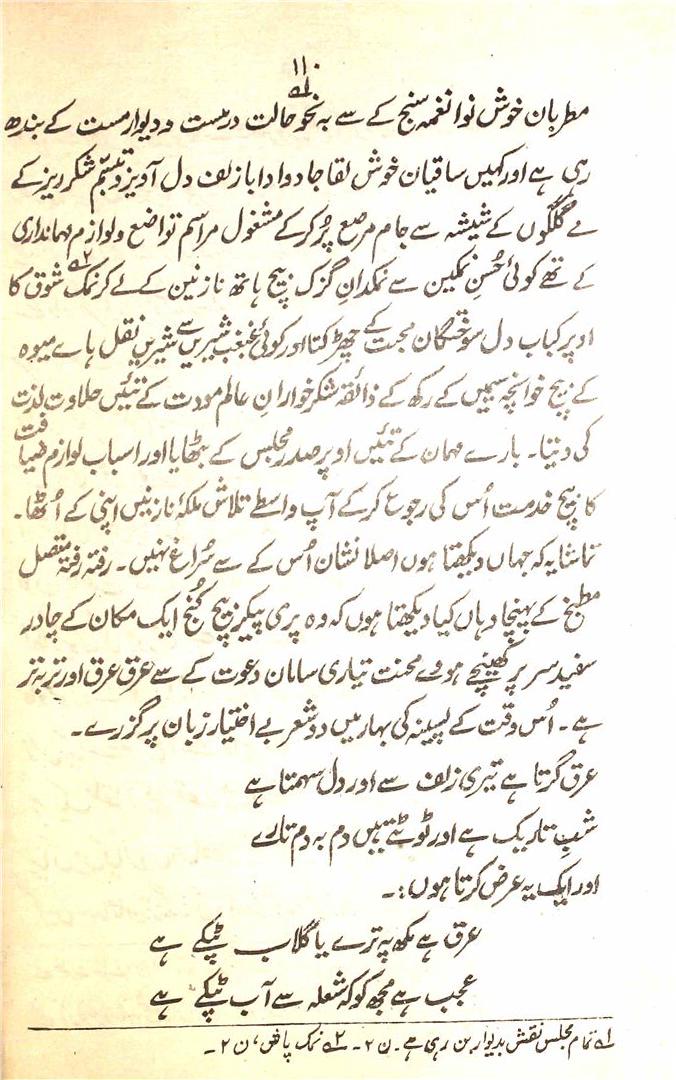 ۱۱۰
مطربان خوش نوا نغمہ سنج کے سے بہ نحو حالت در مست و دیوار مست کے بندھ
رہی ہے اور کہیں ساقیان خوش لقا جادو ادا باز لف دل آویز و تبسّم شکر ریز کے
مے گلگوں کے شیشہ سے جام مرصع پُر کر کے مشغول مراسم تواضع و لوازم مہمانداری
کے تھے کوئی حُسنِ نمکین سے نمکدانِ گزک بیچ ہاتھ نازنین کے لے کر نمک ۲؎ شوق کا
اوپر کباب دل سوختگان محبت کے چھڑکتا اور کوئی غبغب شیریں سے شیریں نقل ہاے میوہ
کے بیچ خوانچہ سیمیں کے رکھ کے ذائقہ شکر خوارانِ عالم مودت کے تئیں حلاوت لذت
کی دیتا۔ بارے مہمان کے تئیں اوپر صدر مجلس کے بٹھایا اور اسباب لوازم ضیافت
کا بیچ خدمت اُس کی رجوع کر کے آپ واسطے تلاش ملکۂ نازنیں اپنی کے اُٹھا۔
تماشا یہ کہ جہاں دیکھتا ہوں اصلا نشان اُس کے سے سُراغ نہیں۔ رفتہ رفتہ متصل
مطبخ کے پہنچا وہاں کیا دیکھتا ہوں کہ وہ پری پیکر بیچ کُنج ایک مکان کے چادر
سفید سر پر کھینچے ہوئے محنت تیاری سامان دعوت کے سے عرق عرق اور تر بہ تر
ہے۔ اُس وقت کے پسینہ کی بہار میں دو شعر بے اختیار زبان پر گزرے۔
عرق گرتا ہے تیری زلف سے اور دل سہمتا ہے
شبِ تاریک ہے اور ٹوٹتے ہیں دم بہ دم تارے
اور ایک یہ عرض کرتا ہوں:۔
عرق ہے مکھ پہ ترے یا گلاب ٹپکے ہے
عجب ہے مجھ کو کہ شعلہ سے آب ٹپکے ہے
۱؎ تمام مجلس نقش بدیوار بن رہی ہے۔ ن ۲۔ ۲؎ نمک پاش، ن ۲۔